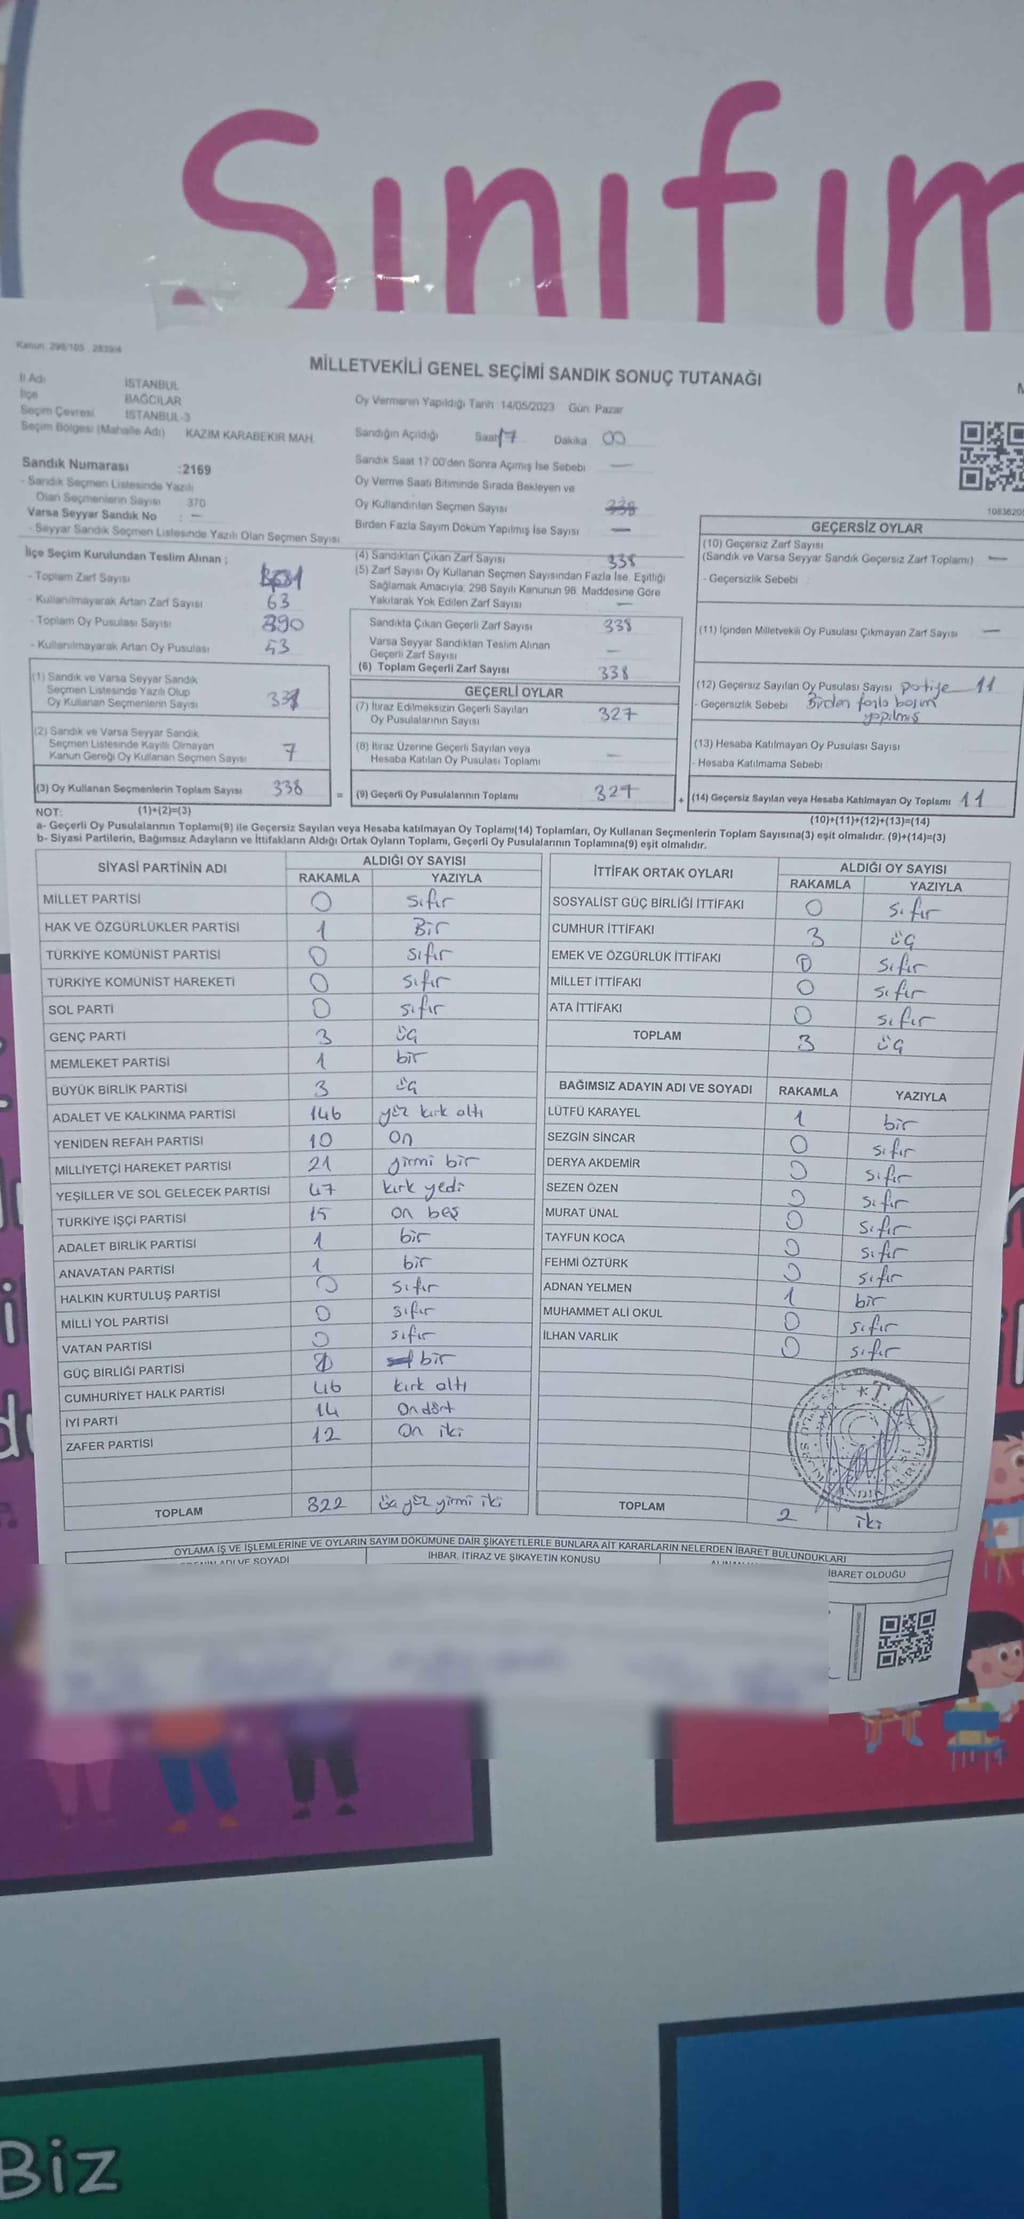 Sınıfım
Kanun: 298/105 , 2839/4
MİLLETVEKİLİ GENEL SEÇİMİ SANDIK SONUÇ TUTANAĞI
İl Adı İSTANBUL
İlçe BAĞCILAR
Seçim Çevresi İSTANBUL-3
Seçim Bölgesi (Mahalle Adı) KAZIM KARABEKİR MAH.
Oy Vermenin Yapıldığı Tarih 14/05/2023 Gün: Pazar
Sandığın Açıldığı Saat 17 Dakika 00
Sandık Saat 17:00'den Sonra Açımış İse Sebebi —
Oy Verme Saati Bitiminde Sırada Bekleyen ve
Oy Kullandırılan Seçmen Sayısı 338
Birden Fazla Sayım Döküm Yapılmış İse Sayısı —
Sandık Numarası :2169
- Sandık Seçmen Listesinde Yazılı
Olan Seçmenlerin Sayısı 370
Varsa Seyyar Sandık No : —
- Seyyar Sandık Seçmen Listesinde Yazılı Olan Seçmen Sayısı
İlçe Seçim Kurulundan Teslim Alınan ;
- Toplam Zarf Sayısı
- Kullanılmayarak Artan Zarf Sayısı 63
- Toplam Oy Pusulası Sayısı 390
- Kullanılmayarak Artan Oy Pusulası 53
(1) Sandık ve Varsa Seyyar Sandık
Seçmen Listesinde Yazılı Olup
Oy Kullanan Seçmenlerin Sayısı 331
(2) Sandık ve Varsa Seyyar Sandık
Seçmen Listesinde Kayıtlı Olmayan
Kanun Gereği Oy Kullanan Seçmen Sayısı 7
(3) Oy Kullanan Seçmenlerin Toplam Sayısı 338
(4) Sandıktan Çıkan Zarf Sayısı 338
(5) Zarf Sayısı Oy Kullanan Seçmen Sayısından Fazla İse, Eşitliği
Sağlamak Amacıyla, 298 Sayılı Kanunun 98. Maddesine Göre
Yakılarak Yok Edilen Zarf Sayısı —
Sandıkta Çıkan Geçerli Zarf Sayısı 338
Varsa Seyyar Sandıktan Teslim Alınan
Geçerli Zarf Sayısı —
(6) Toplam Geçerli Zarf Sayısı 338
GEÇERLİ OYLAR
(7) İtiraz Edilmeksizin Geçerli Sayılan
Oy Pusulalarının Sayısı 327
(8) İtiraz Üzerine Geçerli Sayılan veya
Hesaba Katılan Oy Pusulası Toplamı —
= (9) Geçerli Oy Pusulalarının Toplamı 327
GEÇERSİZ OYLAR
(10) Geçersiz Zarf Sayısı
(Sandık ve Varsa Seyyar Sandık Geçersiz Zarf Toplamı) —
- Geçersizlik Sebebi
(11) İçinden Milletvekili Oy Pusulası Çıkmayan Zarf Sayısı —
(12) Geçersiz Sayılan Oy Pusulası Sayısı 11
- Geçersizlik Sebebi Birden fazla basım
yapılmış
(13) Hesaba Katılmayan Oy Pusulası Sayısı
- Hesaba Katılmama Sebebi
+ (14) Geçersiz Sayılan veya Hesaba Katılmayan Oy Toplamı 11
NOT: (1)+(2)=(3) (10)+(11)+(12)+(13)=(14)
a- Geçerli Oy Pusulalarının Toplamı(9) ile Geçersiz Sayılan veya Hesaba katılmayan Oy Toplamı(14) Toplamları, Oy Kullanan Seçmenlerin Toplam Sayısına(3) eşit olmalıdır. (9)+(14)=(3)
b- Siyasi Partilerin, Bağımsız Adayların ve İttifakların Aldığı Ortak Oyların Toplamı, Geçerli Oy Pusulalarının Toplamına(9) eşit olmalıdır.
SİYASİ PARTİNİN ADI ALDIĞI OY SAYISI
RAKAMLA YAZIYLA
MİLLET PARTİSİ 0 sıfır
HAK VE ÖZGÜRLÜKLER PARTİSİ 1 Bir
TÜRKİYE KOMÜNİST PARTİSİ 0 sıfır
TÜRKİYE KOMÜNİST HAREKETİ 0 sıfır
SOL PARTİ 0 sıfır
GENÇ PARTİ 3 üç
MEMLEKET PARTİSİ 1 bir
BÜYÜK BİRLİK PARTİSİ 3 üç
ADALET VE KALKINMA PARTİSİ 146 yüz kırk altı
YENİDEN REFAH PARTİSİ 10 on
MİLLİYETÇİ HAREKET PARTİSİ 21 yirmi bir
YEŞİLLER VE SOL GELECEK PARTİSİ 47 kırk yedi
TÜRKİYE İŞÇİ PARTİSİ 15 on beş
ADALET BİRLİK PARTİSİ 1 bir
ANAVATAN PARTİSİ 1 bir
HALKIN KURTULUŞ PARTİSİ 0 sıfır
MİLLİ YOL PARTİSİ 0 sıfır
VATAN PARTİSİ 0 sıfır
GÜÇ BİRLİĞİ PARTİSİ 1 bir
CUMHURİYET HALK PARTİSİ 46 kırk altı
İYİ PARTİ 14 on dört
ZAFER PARTİSİ 12 on iki
TOPLAM 322 üç yüz yirmi iki
İTTİFAK ORTAK OYLARI ALDIĞI OY SAYISI
RAKAMLA YAZIYLA
SOSYALİST GÜÇ BİRLİĞİ İTTİFAKI 0 sıfır
CUMHUR İTTİFAKI 3 üç
EMEK VE ÖZGÜRLÜK İTTİFAKI 0 sıfır
MİLLET İTTİFAKI 0 sıfır
ATA İTTİFAKI 0 sıfır
TOPLAM 3 üç
BAĞIMSIZ ADAYIN ADI VE SOYADI RAKAMLA YAZIYLA
LÜTFÜ KARAYEL 1 bir
SEZGİN SİNCAR 0 sıfır
DERYA AKDEMİR 0 sıfır
SEZEN ÖZEN 0 sıfır
MURAT ÜNAL 0 sıfır
TAYFUN KOCA 0 sıfır
FEHMİ ÖZTÜRK 0 sıfır
ADNAN YELMEN 1 bir
MUHAMMET ALİ OKUL 0 sıfır
İLHAN VARLIK 0 sıfır
TOPLAM 2 iki
OYLAMA İŞ VE İŞLEMLERİNE VE OYLARIN SAYIM DÖKÜMÜNE DAİR ŞİKAYETLERLE BUNLARA AİT KARARLARIN NELERDEN İBARET BULUNDUKLARI
ADI VE SOYADI İHBAR, İTİRAZ VE ŞİKAYETİN KONUSU İBARET OLDUĞU
Biz